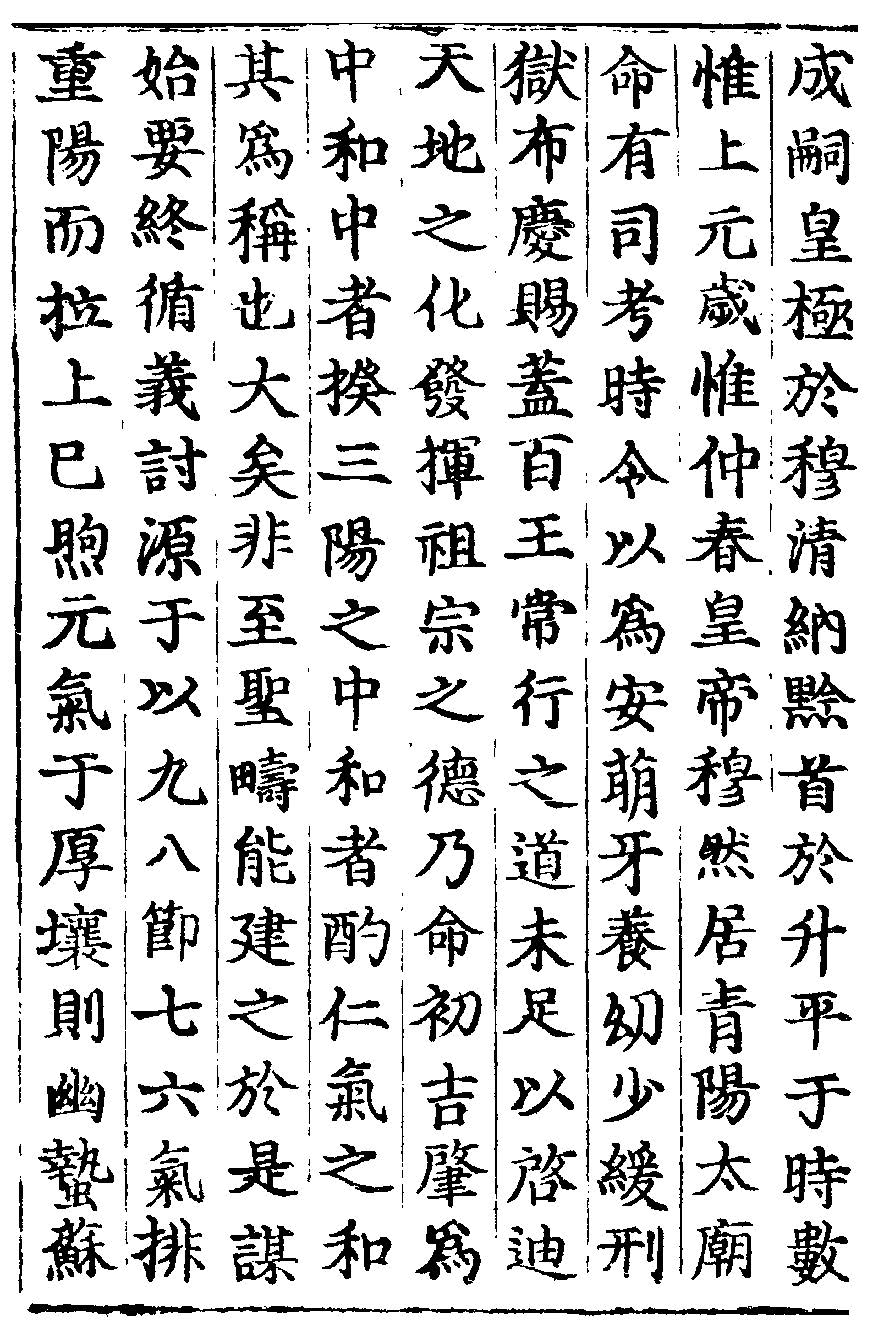 成嗣皇極於穆清納黔首於升平于時數
惟上元歲惟仲春皇帝穆然居青陽太廟
命有司考時令以爲安萌牙養幼少緩刑
獄布慶賜蓋百王常行之道未足以啓迪
天地之化發揮祖宗之德乃命初吉肇爲
中和中者揆三陽之中和者酌仁氣之和
其爲稱也大矣非至聖疇能建之於是謀
始要終循義討源于以九八節七六氣排
重陽而拉上巳煦元氣于厚壤則幽蟄蘇